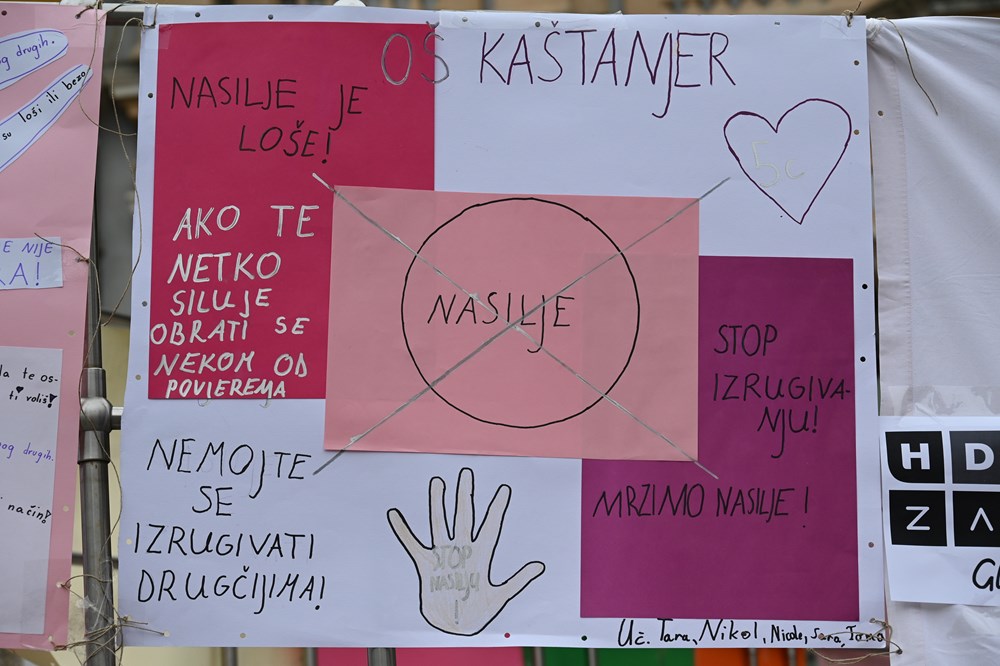 og drugih.
su loši ili bezo
E NIJE
KA!
da te os-
ti voliš!
og drugih.
način?
OŠ KAŠTANJER
5c
NASILJE JE
LOŠE!
AKO TE
NETKO
SILUJE
OBRATI SE
NEKOM OD
POVJEREMA
NASILJE
STOP
IZRUGIVA-
NJU!
MRZIMO NASILJE!
NEMOJTE
SE
IZRUGIVATI
DRUGČIJIMA!
STOP
NASILJU
!
Uč. Tara, Nikol, Nicole, Sara,
HD
ZA